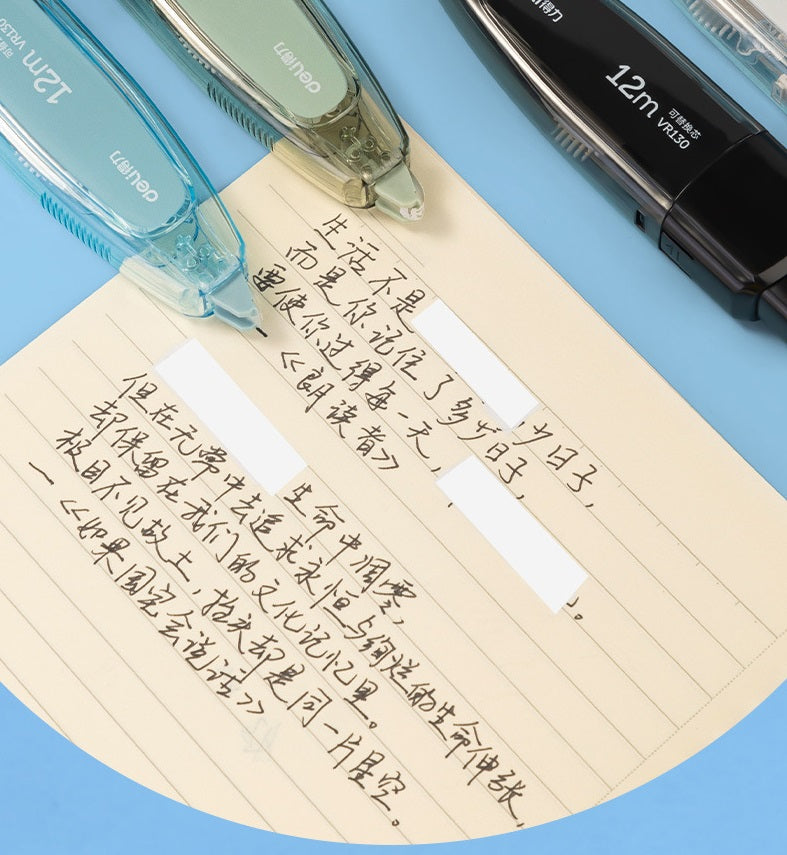 12m
可替换芯
VR130
deli得力
deli得力
得力
12m
可替换芯
VR130
生活不是 少日子,
而是你记住了多少日子,
要使你过得每一天,
《朗读者》
生命中凋零,
但在无常中去追求永恒与绚烂的生命伸张,
却保留在我们的文化记忆里。
极目不见故土,抬头却是同一片星空。
—《如果国宝会说话》